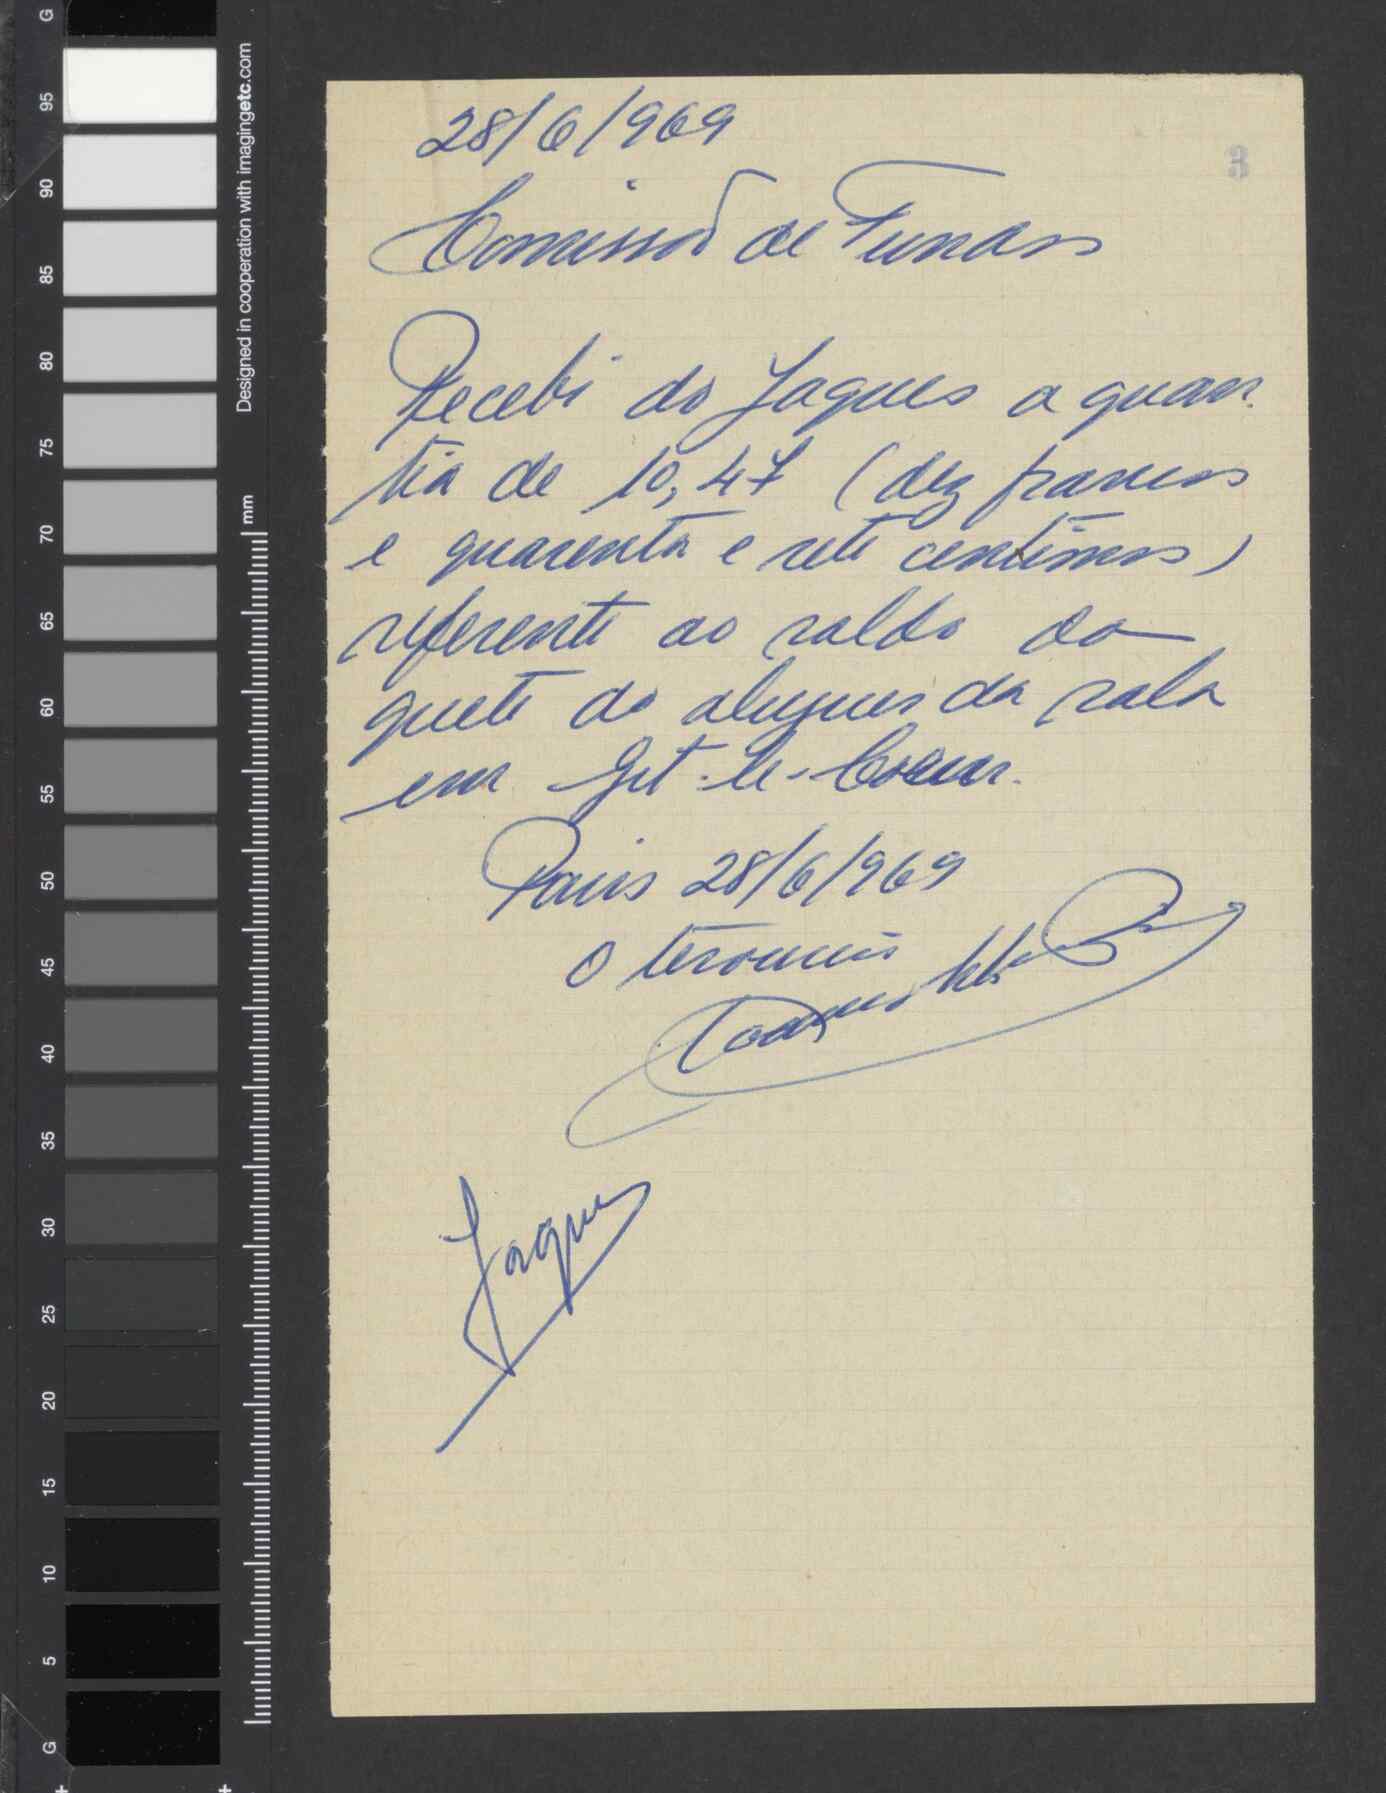 28/6/969
3
Comissão de Fundos
Recebi do Jaques a quan
tia de 10,47 (dez francos
e quarenta e sete centimos)
referente ao saldo da
quete do aluguer da sala
em Git-le-Coeur.
Paris 28/6/969
O tesoureiro
Jaques
G
95
90
85
80
75
70
65
60
55
50
45
40
35
30
25
20
15
10
5
G
Designed in cooperation with imagingetc.com
mm